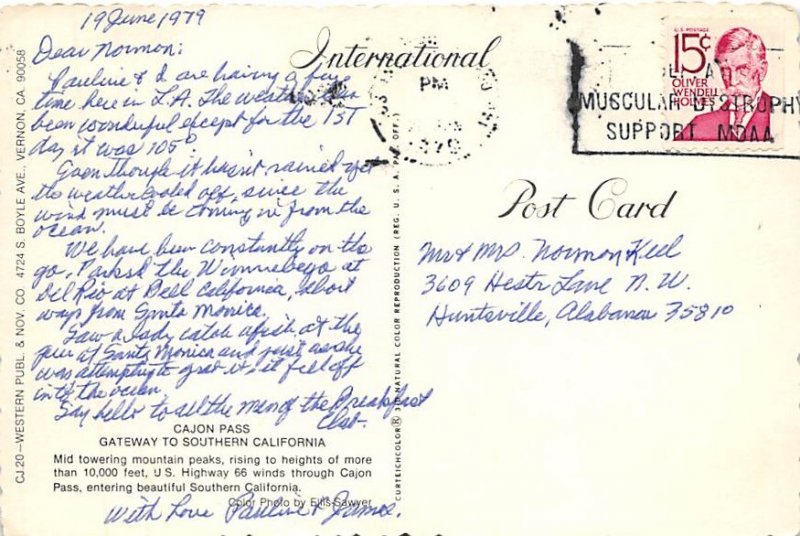 19 June 1979
Dear Norman:
Pauline & I are having a fine
time here in L.A. The weather has
been wonderful except for the 1ST
day it was 105°
Even though it hasn't rained yet
the weather cooled off, since the
wind must be coming in from the
ocean.
We have been constantly on the
go, Parked the Winnebego at
Del Rio at Bell California, short
ways from Santa Monica.
Saw a lady catch a fish at the
pier at Santa Monica and just as she
was attempting to grab it, it fell off
into the ocean.
Say hello to all the men of the Breakfast
Club.
CAJON PASS
GATEWAY TO SOUTHERN CALIFORNIA
Mid towering mountain peaks, rising to heights of more
than 10,000 feet, U.S. Highway 66 winds through Cajon
Pass, entering beautiful Southern California.
Color Photo by Ellis-Sawyer
With Love Pauline &
CJ20—WESTERN PUBL. & NOV. CO. 4724 S. BOYLE AVE., VERNON, CA. 90058
CURTEICHCOLOR® 3-D NATURAL COLOR REPRODUCTION (REG. U.S.A. PAT. OFF.)
International
Post Card
PM
1979
MUSCULAR DYSTROPHY
SUPPORT MDAA
U.S. POSTAGE
15¢
OLIVER
WENDELL
HOLMES
Mr & Mrs. Norman Keel
3609 Hestr Lane N.W.
Huntsville, Alabama 35810